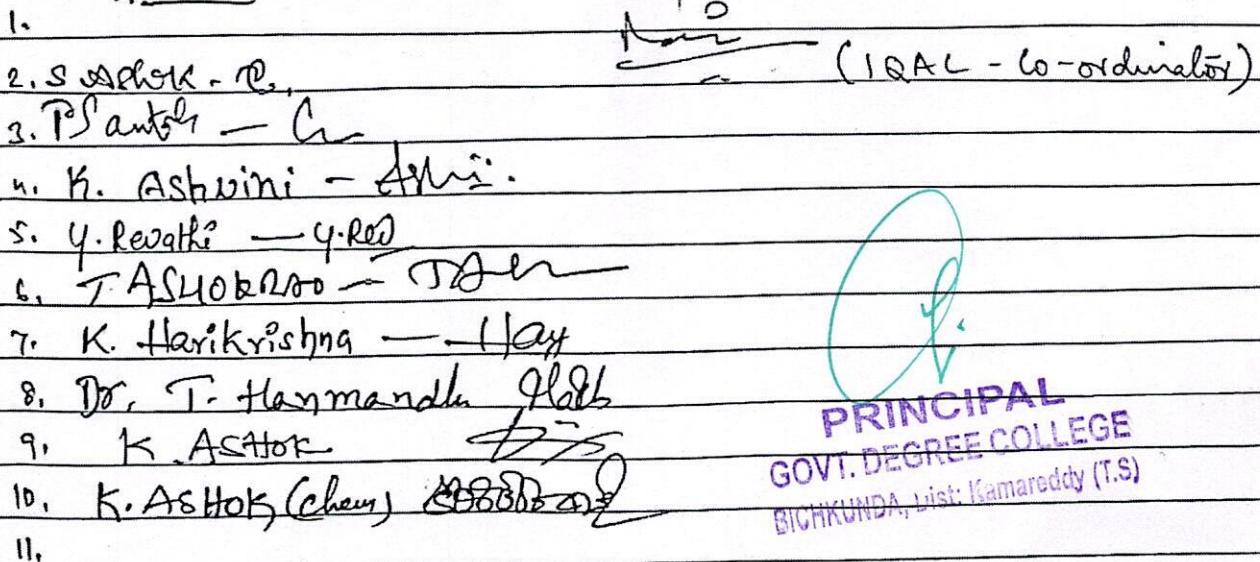 1.
(IQAC - Co-ordinator)
2. S Ashok -
3. P Santosh —
4. K. Ashwini - Ashi.
5. Y. Revathi — Y.Rev
6. T ASHOKRAO —
7. K. Harikrishna — Hari
8. Dr. T. Hanmandlu
9. K ASHOK
10. K. ASHOK (Chem)
11.
PRINCIPAL
GOVT. DEGREE COLLEGE
BICHKUNDA, Dist: Kamareddy (T.S)